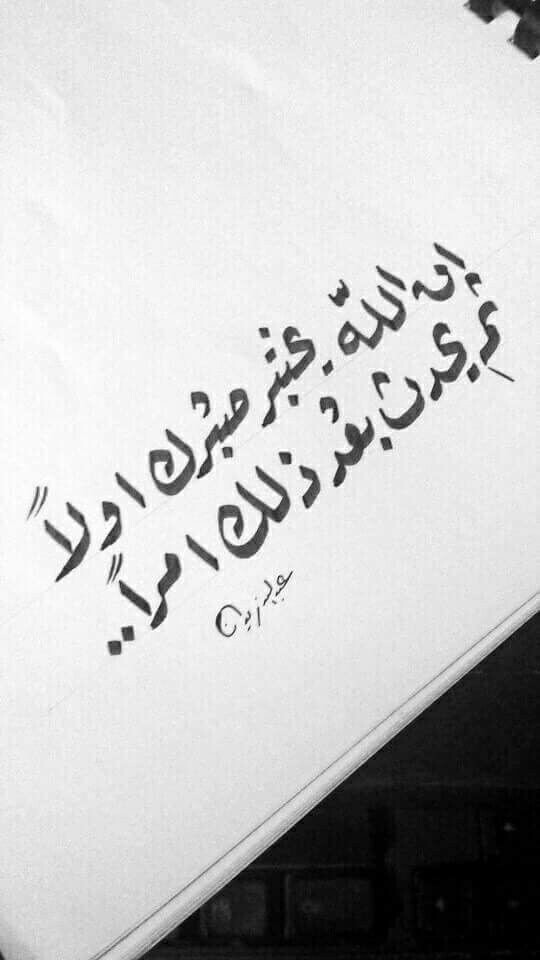 إن اللّه يختبر صبرك اولاً
ثم يحدث بعد ذلك امراً..